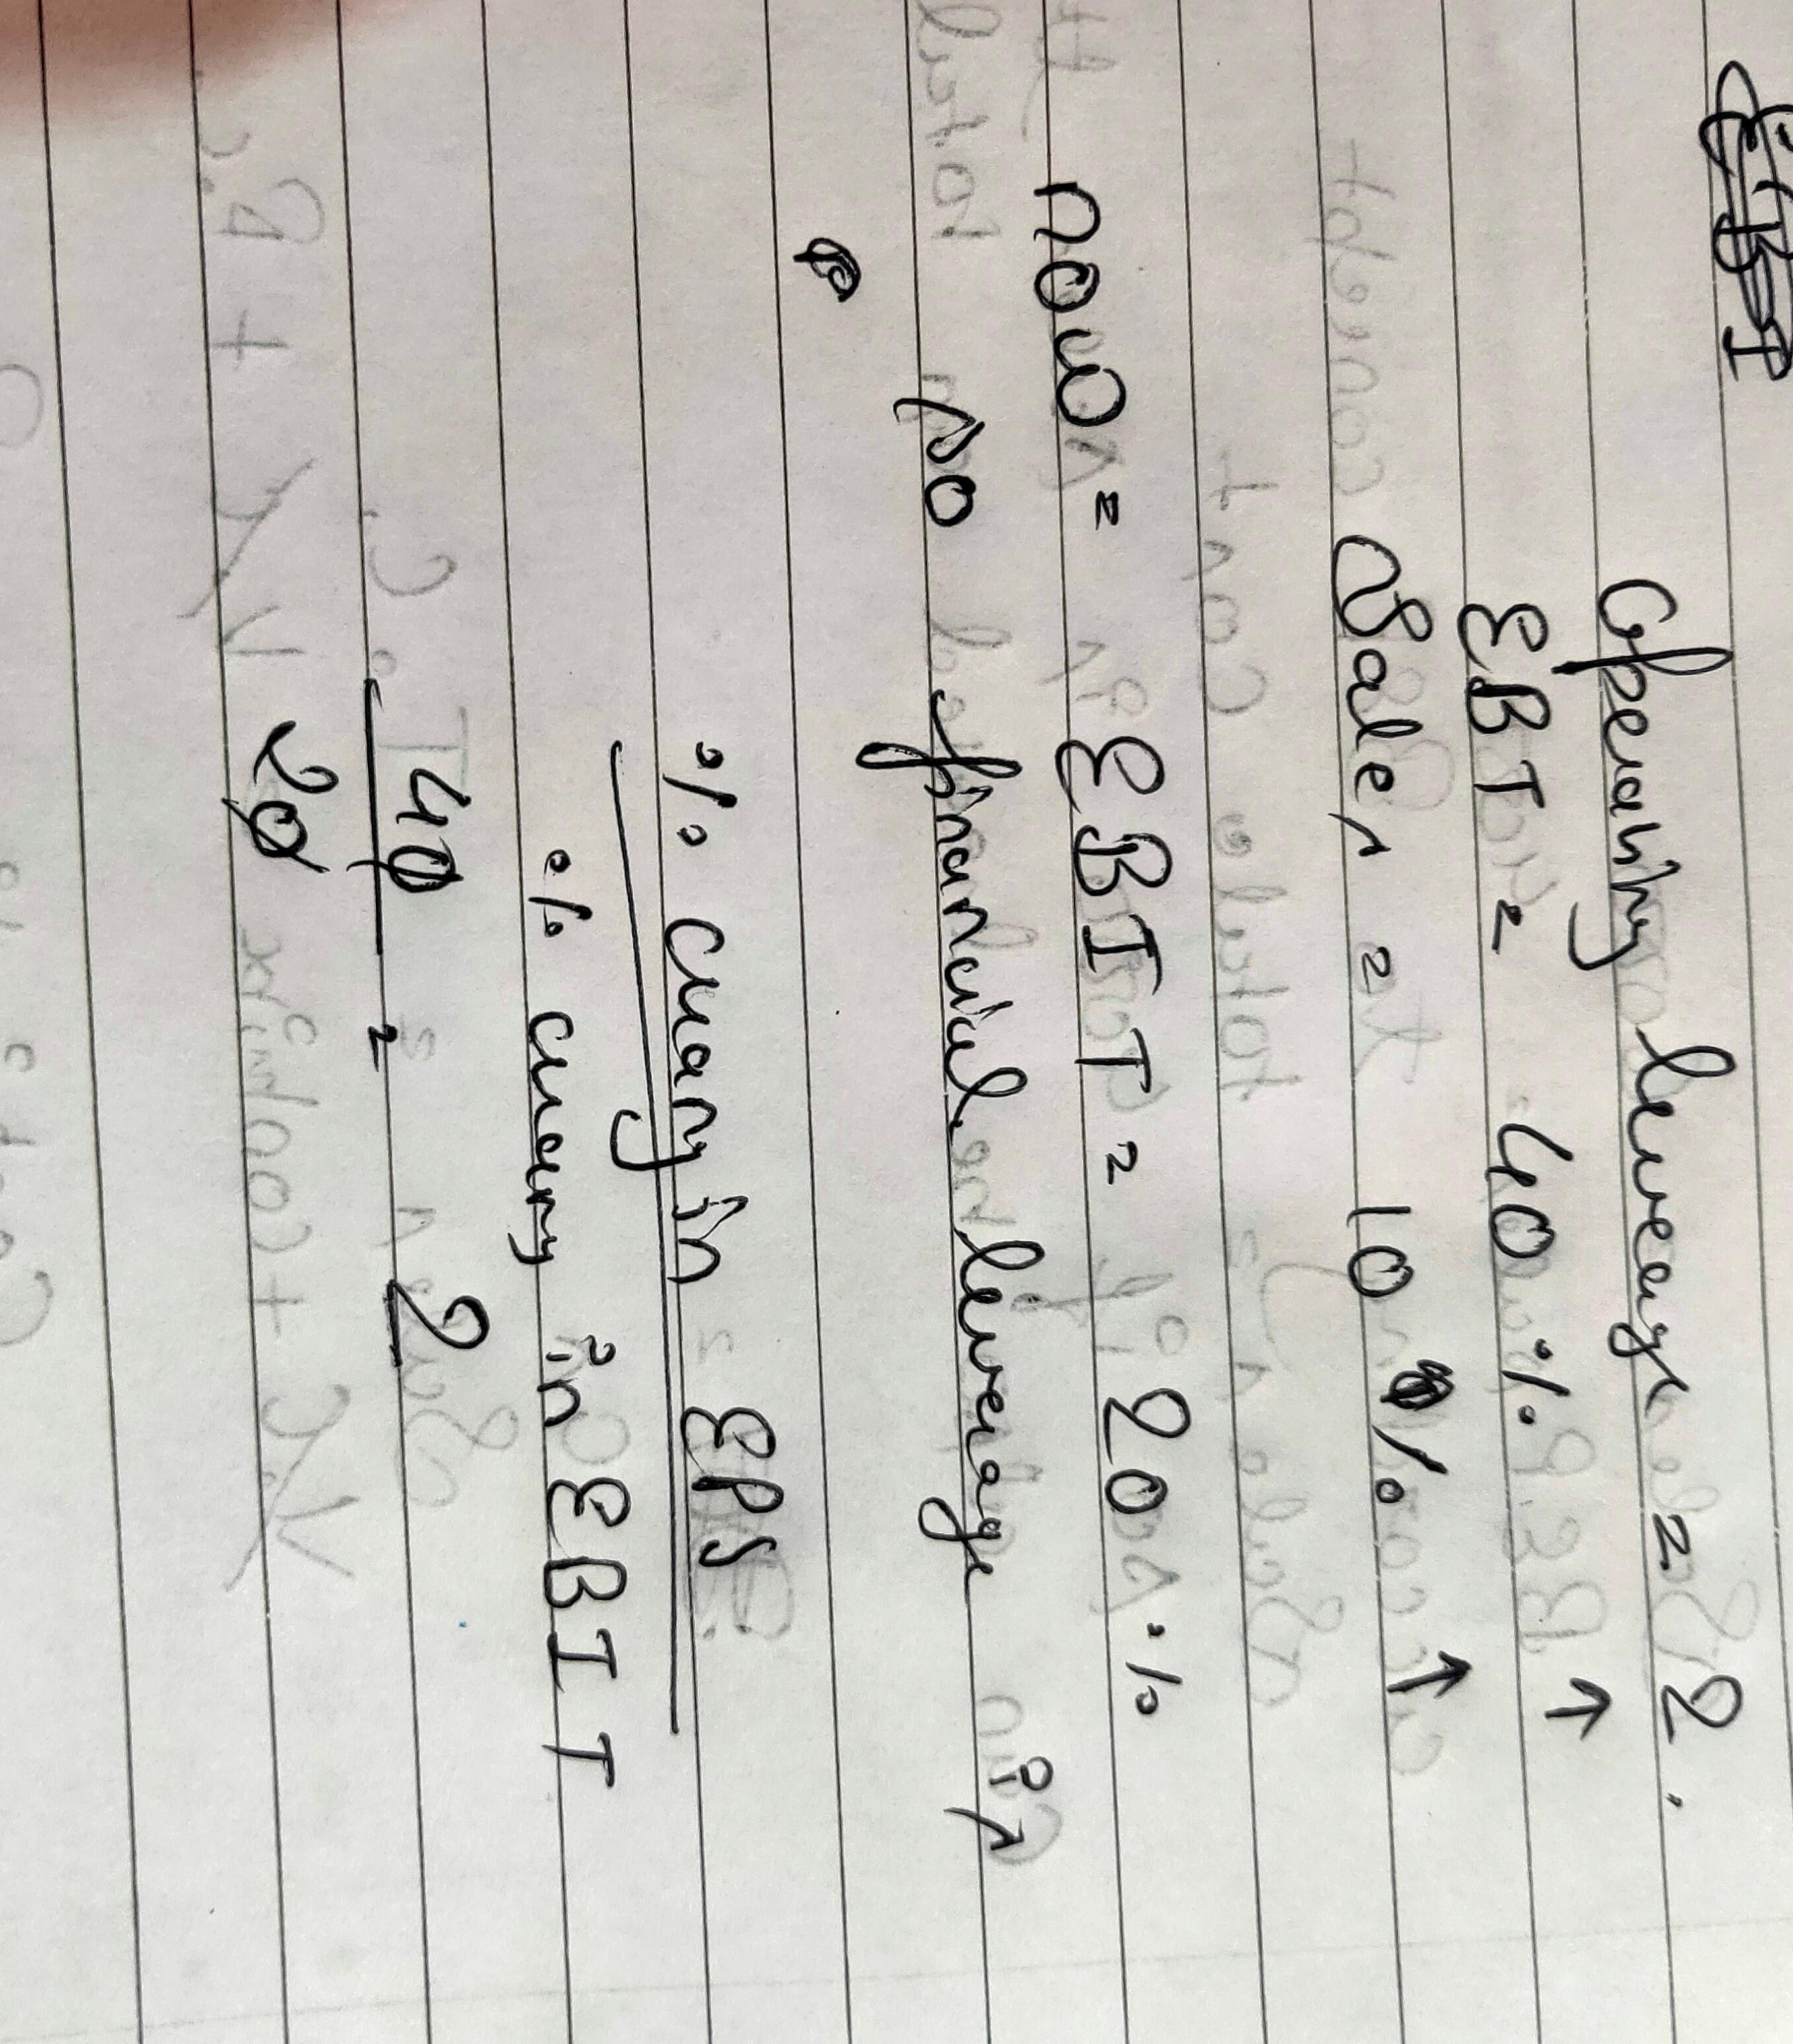 Operating leverage = 2.
EBIT = 40% ↑
Sales = 10 % ↑
now = EBIT = 20%
so financial leverage is
% change in EPS
% change in EBIT
40 = 2
20